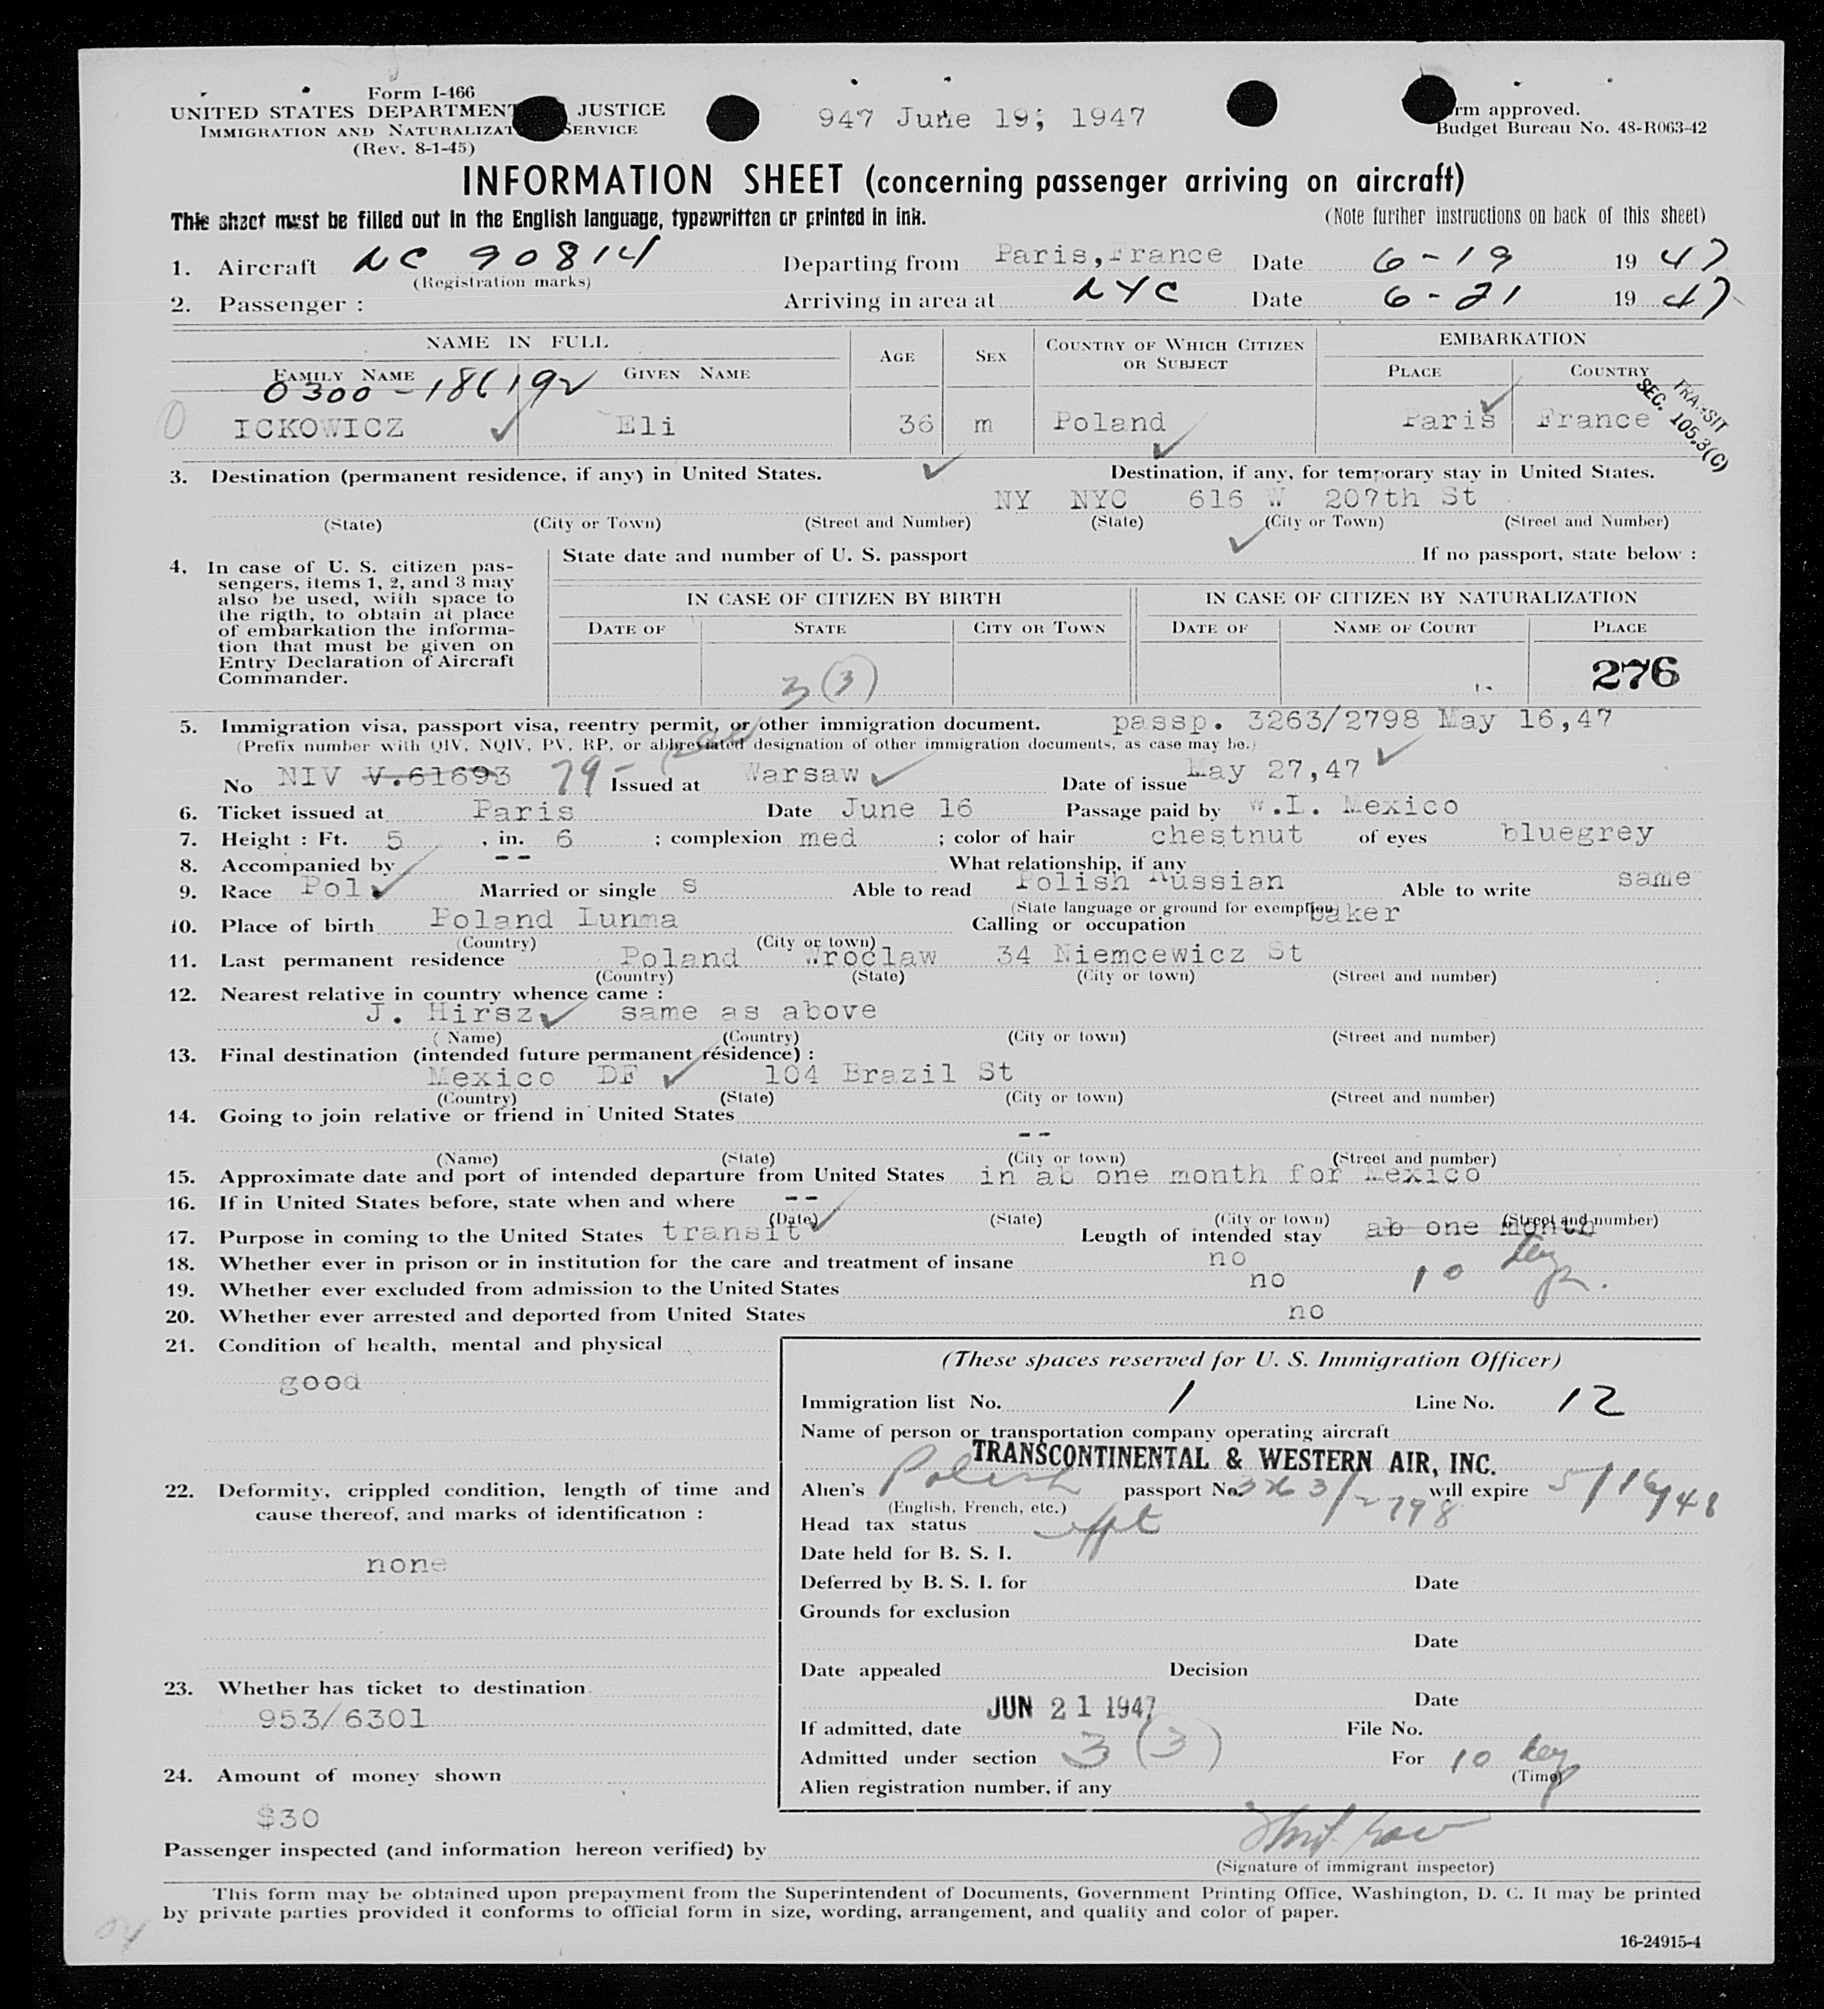 Form I-466
UNITED STATES DEPARTMENT JUSTICE
IMMIGRATION AND NATURALIZAT SERVICE
(Rev. 8-1-45)
947 June 19; 1947
rm approved.
Budget Bureau No. 48-R063-42
INFORMATION SHEET (concerning passenger arriving on aircraft)
This sheet must be filled out in the English language, typewritten or printed in ink.
(Note further instructions on back of this sheet)
1. Aircraft NC 90814 Departing from Paris, France Date 6-19 1947
(Registration marks)
2. Passenger : Arriving in area at NYC Date 6-21 1947
NAME IN FULL
AGE SEX COUNTRY OF WHICH CITIZEN OR SUBJECT
EMBARKATION
FAMILY NAME GIVEN NAME PLACE COUNTRY
0300-186192
TRANSIT
SEC. 105.3(C)
0 ICKOWICZ Eli 36 m Poland Paris France
3. Destination (permanent residence, if any) in United States. Destination, if any, for temporary stay in United States.
NY NYC 616 W 207th St
(State) (City or Town) (Street and Number) (State) (City or Town) (Street and Number)
4. In case of U. S. citizen pas-
sengers, items 1, 2, and 3 may
also be used, with space to
the rigth, to obtain at place
of embarkation the informa-
tion that must be given on
Entry Declaration of Aircraft
Commander.
State date and number of U. S. passport If no passport, state below :
IN CASE OF CITIZEN BY BIRTH IN CASE OF CITIZEN BY NATURALIZATION
DATE OF STATE CITY OR TOWN DATE OF NAME OF COURT PLACE
3 (3) 276
5. Immigration visa, passport visa, reentry permit, or other immigration document. passp. 3263/2798 May 16,47
(Prefix number with QIV, NQIV, PV, RP, or abbreviated designation of other immigration documents, as case may be.)
No NIV V.61693 79- Issued at Warsaw Date of issue May 27,47
6. Ticket issued at Paris Date June 16 Passage paid by W.I. Mexico
7. Height : Ft. 5 , in. 6 ; complexion med ; color of hair chestnut of eyes bluegrey
8. Accompanied by -- What relationship, if any
9. Race Pol Married or single s Able to read Polish Russian Able to write same
(State language or ground for exemption)
10. Place of birth Poland Lunna Calling or occupation baker
(Country) (City or town)
11. Last permanent residence Poland Wroclaw 34 Niemcewicz St
(Country) (State) (City or town) (Street and number)
12. Nearest relative in country whence came :
J. Hirsz same as above
( Name) (Country) (City or town) (Street and number)
13. Final destination (intended future permanent résidence) :
Mexico DF 104 Brazil St
(Country) (State) (City or town) (Street and number)
14. Going to join relative or friend in United States
--
(Name) (State) (City or town) (Street and number)
15. Approximate date and port of intended departure from United States in ab one month for Mexico
16. If in United States before, state when and where --
(Date) (State) (City or town) (Street and number)
17. Purpose in coming to the United States transit Length of intended stay ab one month
18. Whether ever in prison or in institution for the care and treatment of insane no 10 days.
19. Whether ever excluded from admission to the United States no
20. Whether ever arrested and deported from United States no
21. Condition of health, mental and physical
good
22. Deformity, crippled condition, length of time and
cause thereof, and marks of identification :
none
23. Whether has ticket to destination
953/6301
24. Amount of money shown
$30
(These spaces reserved for U. S. Immigration Officer)
Immigration list No. 1 Line No. 12
Name of person or transportation company operating aircraft
TRANSCONTINENTAL & WESTERN AIR, INC.
Alien's Polish passport No. 3263/2798 will expire 5/16/48
(English, French, etc.)
Head tax status
Date held for B. S. I.
Deferred by B. S. I. for Date
Grounds for exclusion
Date
Date appealed Decision
JUN 21 1947 Date
If admitted, date File No.
Admitted under section 3 (3) For 10 days
(Time)
Alien registration number, if any
Passenger inspected (and information hereon verified) by
(Signature of immigrant inspector)
This form may be obtained upon prepayment from the Superintendent of Documents, Government Printing Office, Washington, D. C. It may be printed
by private parties provided it conforms to official form in size, wording, arrangement, and quality and color of paper.
16-24915-4